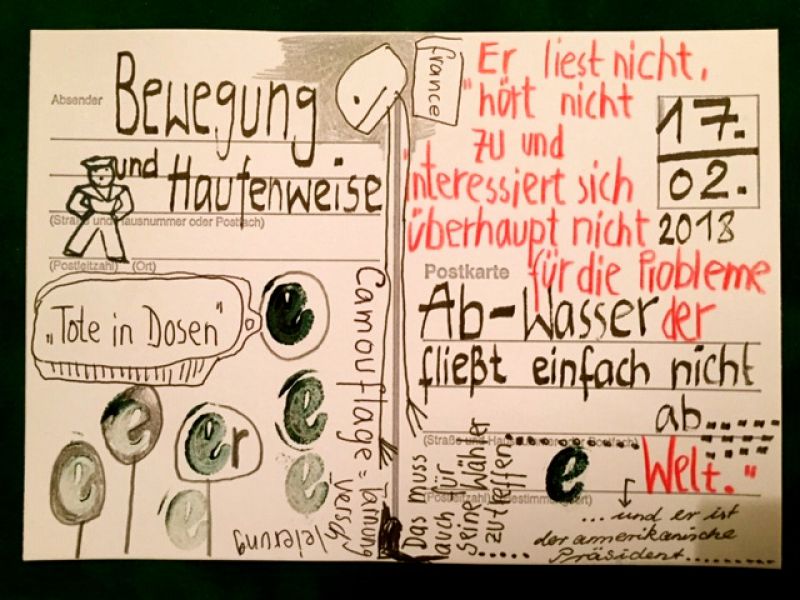 Absender
Bewegung
und Haufenweise
(Straße und Hausnummer oder Postfach)
(Postleitzahl) (Ort)
„Tote in Dosen“
e
e
e
er
e
e
e
Camouflage = Tarnung
Verschleierung
france
Er liest nicht,
"hört nicht
zu und
interessiert sich
überhaupt nicht
für die Probleme
der
Welt."
17.
02.
2018
Postkarte
Ab-Wasser
fließt einfach nicht
ab.....
(Straße und Hausnummer oder Postfach)
(Postleitzahl) (Bestimmungsort)
e
Das muss
auch für
seine Wähler
zutreffen,
.....
... und er ist
der ammerikanische
Präsident........